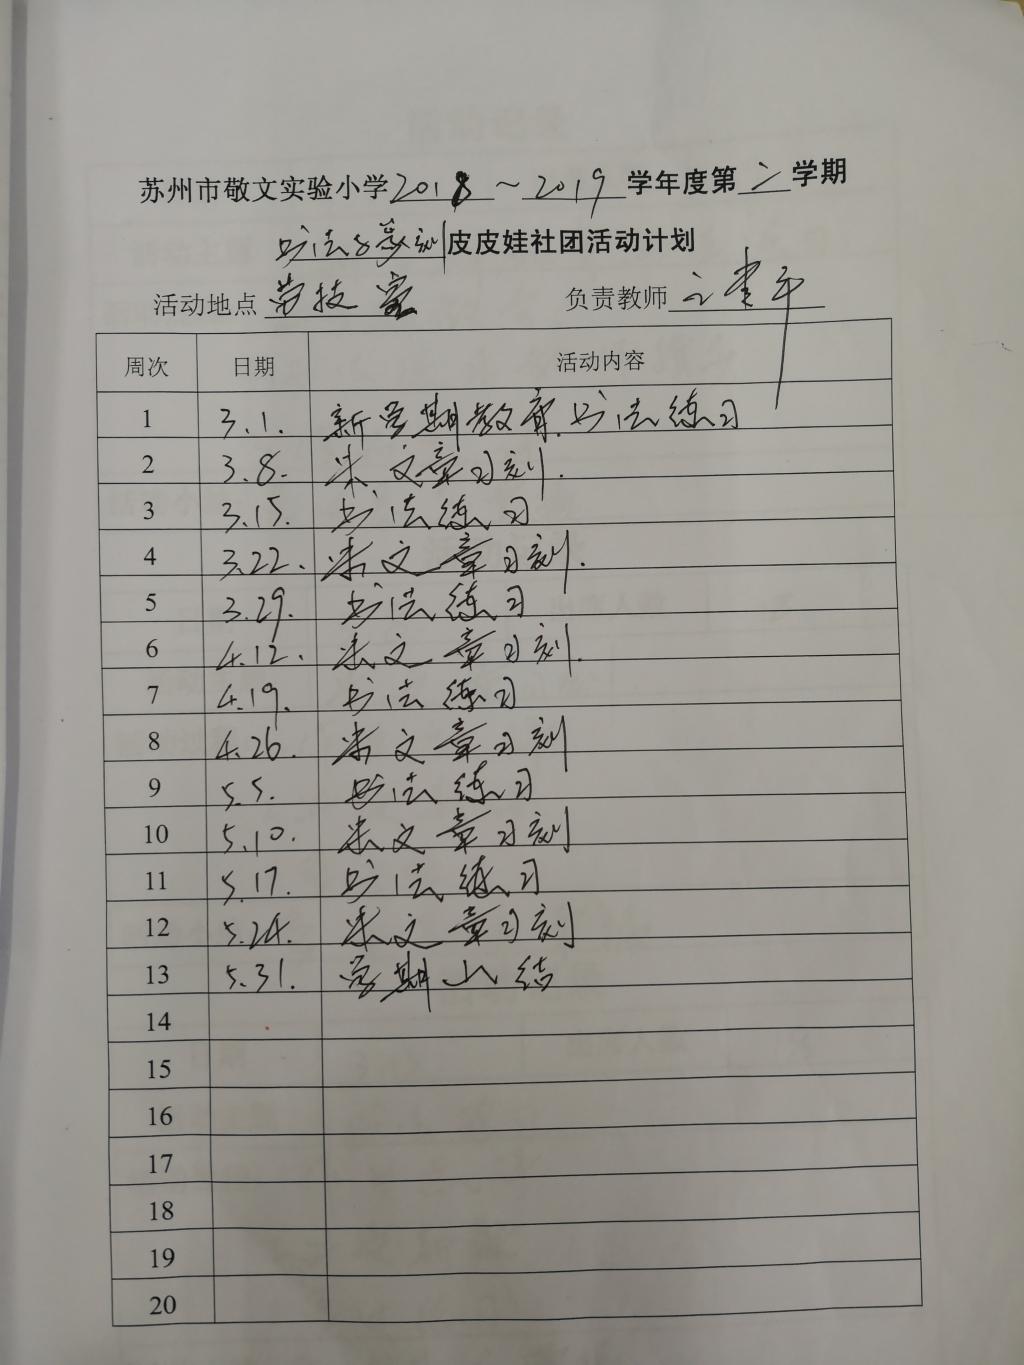 苏州市敬文实验小学2018～2019学年度第二学期
书法与篆刻皮皮娃社团活动计划
活动地点 劳技室 负责教师
周次 日期 活动内容
1 3.1. 新学期教育.书法练习
2 3.8. 朱文章习刻.
3 3.15. 书法练习
4 3.22. 朱文章习刻.
5 3.29. 书法练习
6 4.12. 朱文章习刻.
7 4.19. 书法练习
8 4.26. 朱文章习刻
9 5.5. 书法练习
10 5.10. 朱文章习刻
11 5.17. 书法练习
12 5.24. 朱文章习刻
13 5.31. 学期小结
14
15
16
17
18
19
20